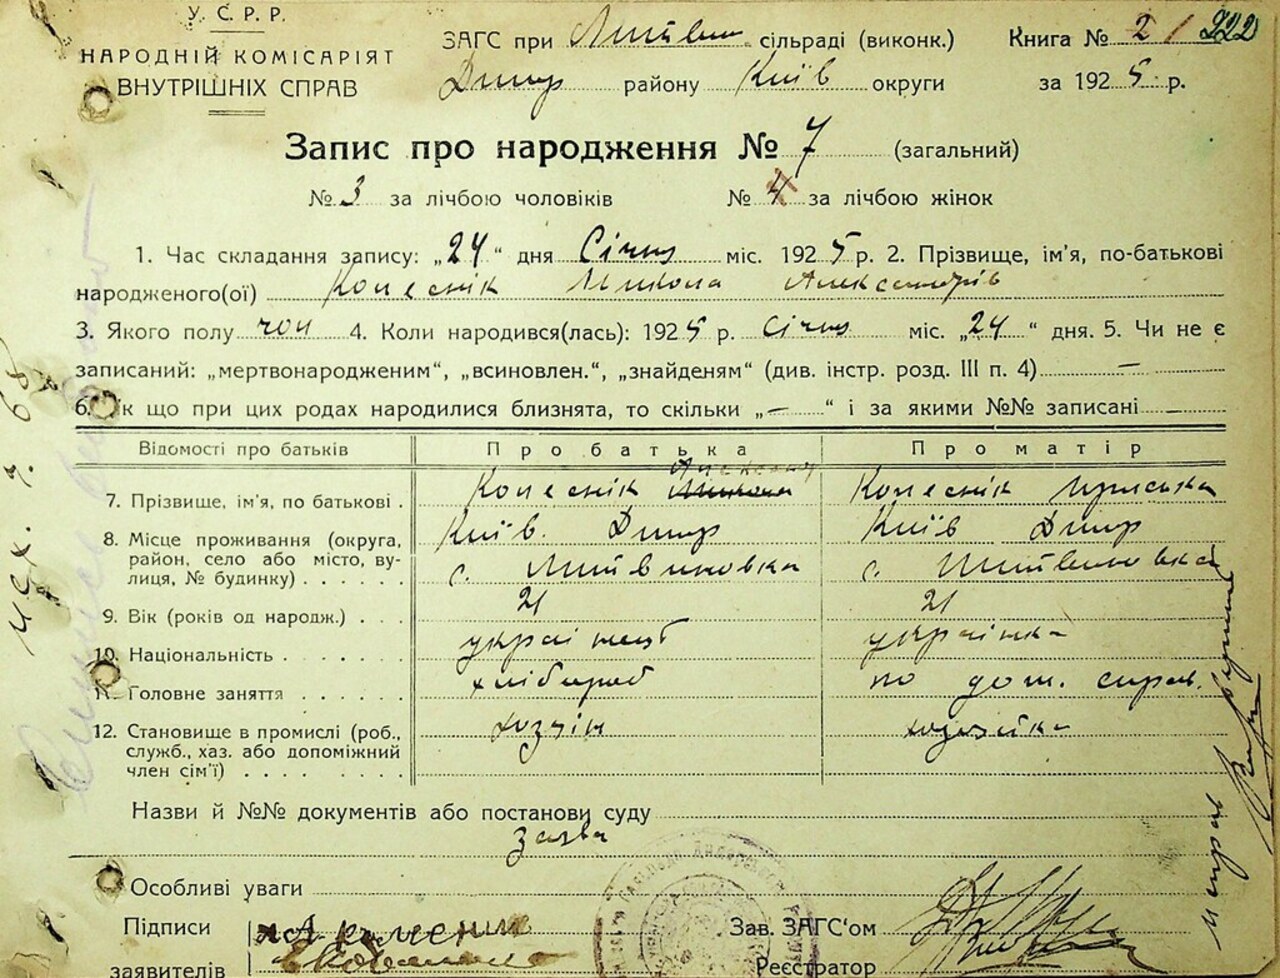 У. С. Р. Р.
НАРОДНІЙ КОМІСАРІЯТ
ВНУТРІШНІХ СПРАВ
ЗАГС при Литвин. сільраді (виконк.) Книга № 2 222
Димер району Київ округи за 1925 р.
Запис про народження № 7 (загальний)
№ 3 за лічбою чоловіків № 4 за лічбою жінок
1. Час складання запису: „24“ дня Січня міс. 1925 р. 2. Прізвище, ім'я, по-батькові
народженого(ої) Колеснік Микола Александрів
3. Якого полу чол 4. Коли народився(лась): 1925 р. січня міс. „24“ дня. 5. Чи не є
записаний: „мертвонародженим“, „всиновлен.“, „знайденям“ (див. інстр. розд. III п. 4) —
6. Як що при цих родах народилися близнята, то скільки „—“ і за якими №№ записані —
Відомості про батьків Про батька Про матір
7. Прізвище, ім'я, по батькові . Колеснік Колеснік
8. Місце проживання (округа, район, село або місто, вулиця, № будинку) . . . . . .
Київ. Димер
с. Литвиновка
Київ Димер
с. Литвиновка
9. Вік (років од народж.) . . . 21 21
10. Національність . . . . . . українець українка
11. Головне заняття . . . . . . хлібороб по дом. справ.
12. Становище в промислі (роб., служб., хаз. або допоміжний член сім'ї) . . . . . . . .
хозяін хозяйка
Назви й №№ документів або постанови суду
заява
Особливі уваги
Підписи
заявителів
Зав. ЗАГС'ом
Реєстратор